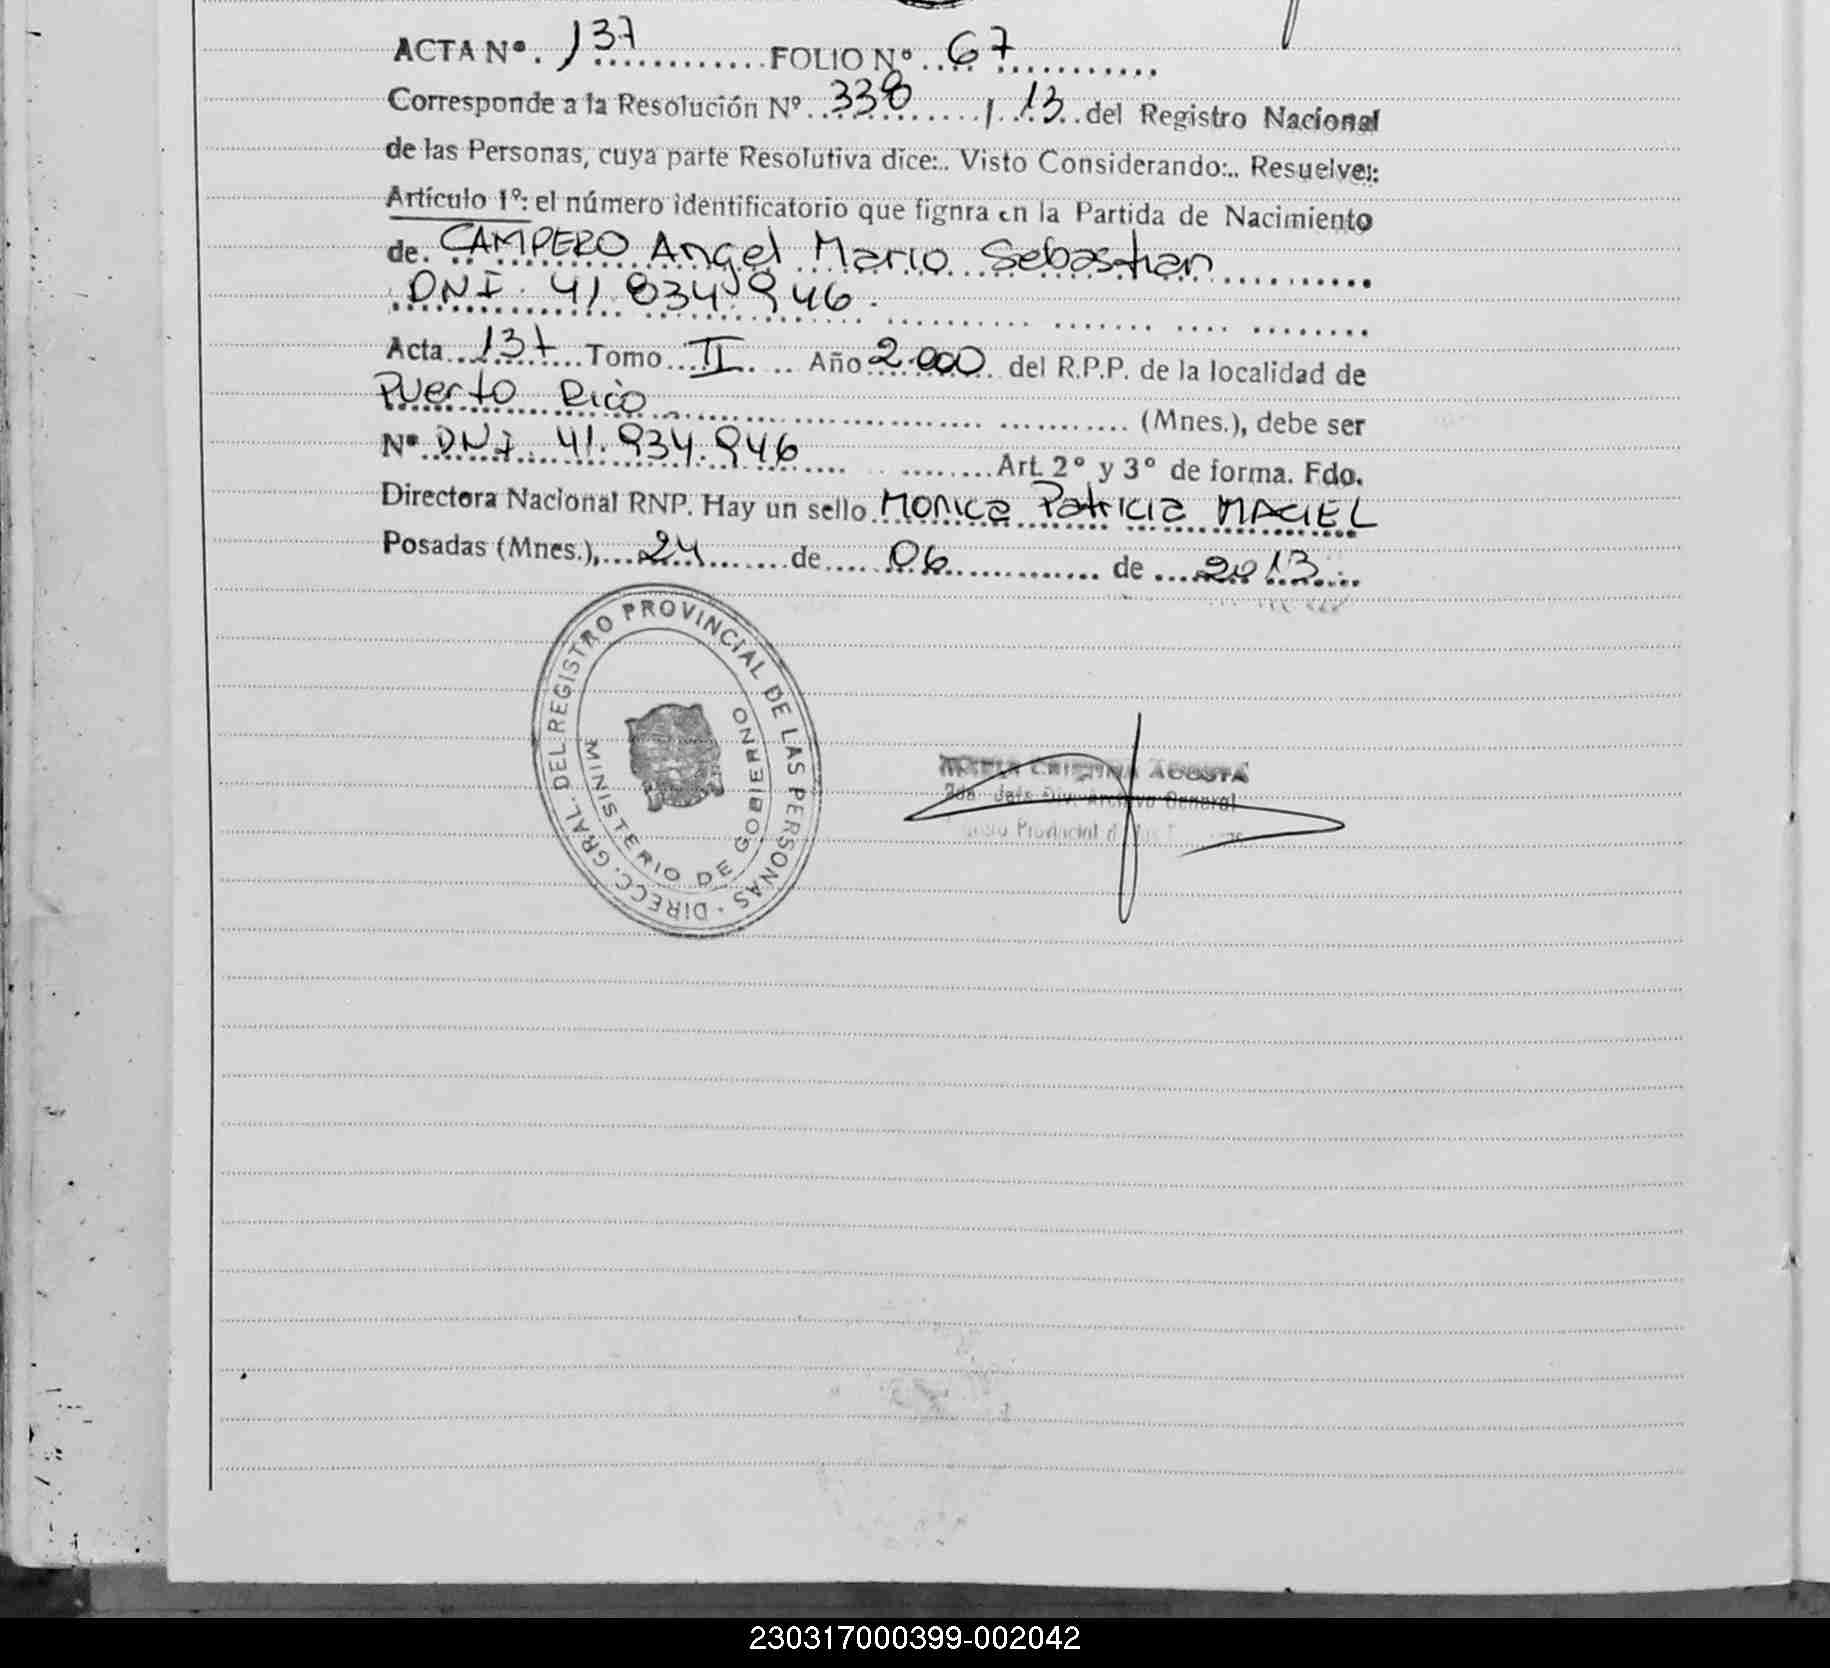 ACTA Nº. 137 FOLIO Nº 67
Corresponde a la Resolución Nº 338 / 13 del Registro Nacional
de las Personas, cuya parte Resolutiva dice:.. Visto Considerando:.. Resuelve:
Artículo 1º: el número identificatorio que fignra en la Partida de Nacimiento
de. CAMPERO Angel Mario Sebastian
DNI. 41.834.946.
Acta 137 Tomo II Año 2.000 del R.P.P. de la localidad de
Puerto Rico (Mnes.), debe ser
Nº DNI 41.934.946 Art. 2º y 3º de forma. Fdo.
Directora Nacional RNP. Hay un sello MONICA Patricia MACIEL
Posadas (Mnes.), 24 de 06 de 2013
DIRECC. GRAL. DEL REGISTRO PROVINCIAL DE LAS PERSONAS
MINISTERIO DE GOBIERNO
MARIA CRISTINA ACOSTA
Jefe Div. Archivo General
Provincial
230317000399-002042